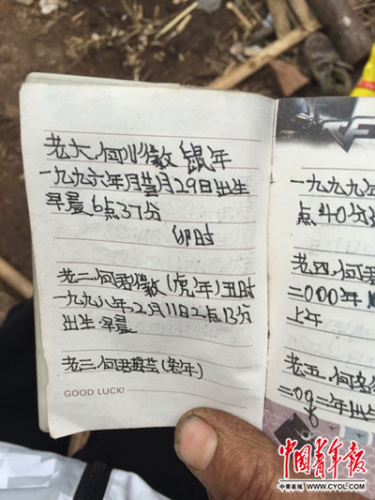 老大.何川徽 鼠年
一九九六年月29日出生
早晨6点37分
卯时
老二.何君徽(虎年)丑时
一九九八年2月11日2点13分
出生 早晨
老三.何君(兔年)
GOOD LUCK!
一九九九
点40分
老四.何君
二000年
上午
老五.何
二0二年出生
中国青年报
中青在线 WWW.CYOL.COM